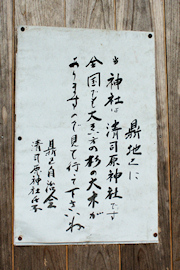 鼎地区に
当神社は清司原神社です
全国でも大きい方の杉の大木が
ありますので見て行って下さいね
鼎区自治会
清司原神社氏子